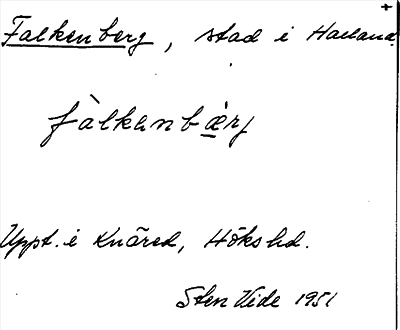 +
Falkenberg, stad i Halland.
fàlkenbæ̀rj
Uppt. i Knäred, Höks hd.
Sten Vide 1951